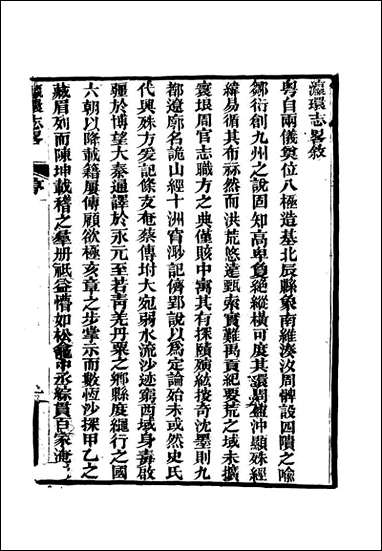 瀛環志畧敘
粤自兩儀奠位八極造基北辰縣象南維湊汝周髀設四隤之喻
鄒衍創九州之說固知高卑負絕縱橫可度其環周盧沖顯殊經
緯易循其布列然而洪荒悠遠甄索實難禹貢紀要荒之域未擴
寰垠周官志職方之典僅賅中寓其有探賾殯紘接奇沈墨則九
都遼廓名詭山經十洲窅渺記儕郢說以爲定論始未或然史氏
代興殊方爰記條支奄蔡傳坿大宛弱水流沙迹窮西域身毒啟
疆於博望大秦通譯於永元至若青羌丹粟之鄉縣度纚行之國
六朝以降載籍屢傳顧欲極亥章之步掌示而數恆沙探甲乙之
藏眉列而陳坤載稽之羣册祇益懵如松龕中丞綜貫百家淹
瀛環志畧
序